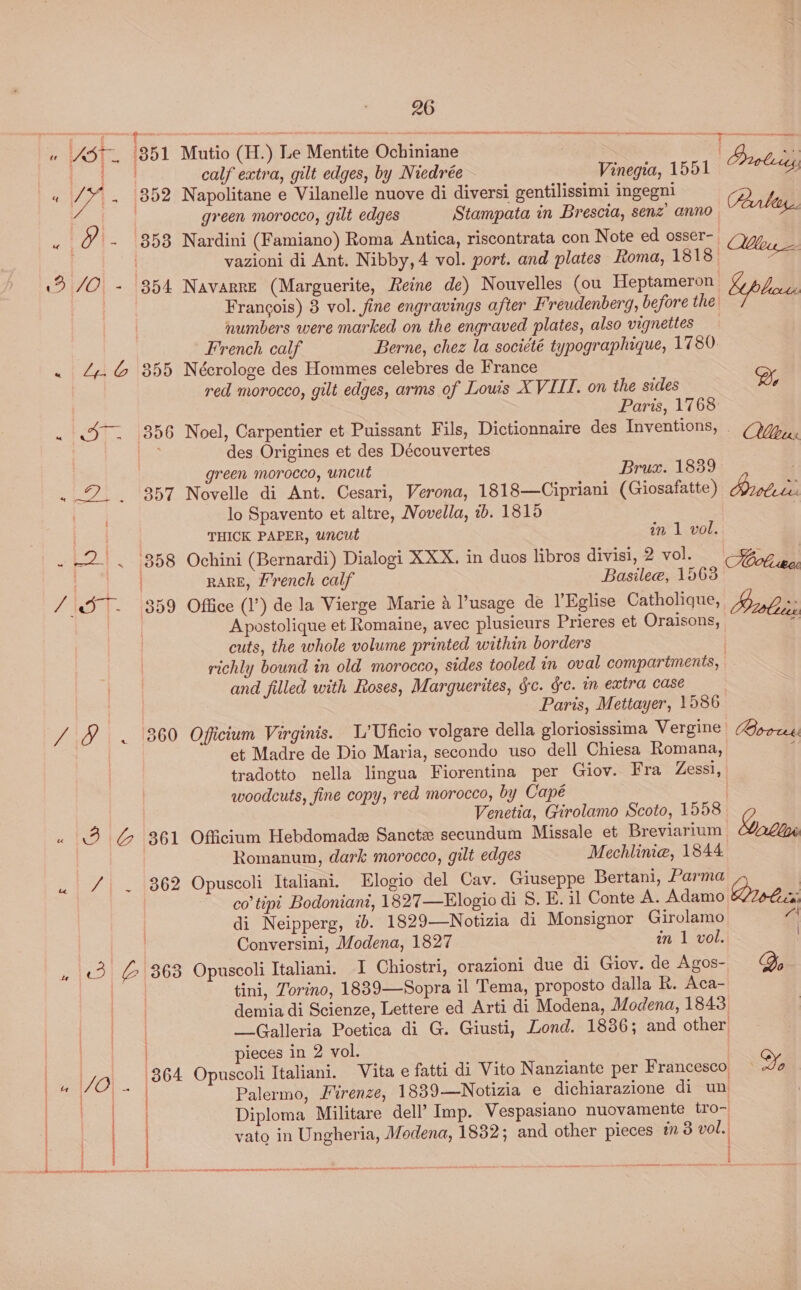 26
" 15 - 351 Mutio (H.) Le Mentite Ochiniane
calf extra, gilt edges, by Niedrée Vinegia, 1551
" 352 Napolitane e Vilanelle nuove di diversi gentilissimi ingegni
green morocco, gilt edges Stampata in Brescia, senz' anno
" 9 - 353 Nardini (Famiano) Roma Antica, riscontrata con Note ed osser-
vazioni di Ant. Nibby, 4 vol. port. and plates Roma, 1818
3 10 - 354 NAVARRE (Marguerite, Reine de) Nouvelles (ou Heptameron
François) 3 vol. fine engravings after Freudenberg, before the
numbers were marked on the engraved plates, also vignettes
French calf Berne, chez la societé typographique, 1780
" 4 6 355 Nécrologe des Hommes celebres de France Do
red morocco, gilt edges, arms of Louis XVIII. on the sides
Paris, 1768
" 5 - 356 Noel, Carpentier et Puissant Fils, Dictionnaire des Inventions,
des Origines et des Découvertes
green morocco, uncut Brux. 1839
" 2 - 357 Novelle di Ant. Cesari, Verona, 1818—Cipriani (Giosafatte)
lo Spavento et altre, Novella, ib. 1815
THICK PAPER, uncut in 1 vol.
" 2 - 358 Ochini (Bernardi) Dialogi XXX. in duos libros divisi, 2 vol.
RARE, French calf Basileæ, 1563
1 5 - 359 Office (l') de la Vierge Marie à l'usage de l'Eglise Catholique,
Apostolique et Romaine, avec plusieurs Prieres et Oraisons,
cuts, the whole volume printed within borders
richly bound in old morocco, sides tooled in oval compartments,
and filled with Roses, Marguerites, &c. &c. in extra case
Paris, Mettayer, 1586
1 9 - 360 Officium Virginis. L'Uficio volgare della gloriosissima Vergine Boone
et Madre de Dio Maria, secondo uso dell Chiesa Romana,
tradotto nella lingua Fiorentina per Giov. Fra Zessi,
woodcuts, fine copy, red morocco, by Capé
Venetia, Girolamo Scoto, 1558
" 3 6 361 Officium Hebdomadæ Sanctæ secundum Missale et Breviarium
Romanum, dark morocco, gilt edges Mechliniæ, 1844
" 1 - 362 Opuscoli Italiani. Elogio del Cav. Giuseppe Bertani, Parma
co' tipi Bodoniani, 1827—Elogio di S. E. il Conte A. Adamo
di Neipperg, ib. 1829—Notizia di Monsignor Girolamo
Conversini, Modena, 1827 in 1 vol.
" 3 6 363 Opuscoli Italiani. I Chiostri, orazioni due di Giov. de Agos- Do
tini, Torino, 1839—Sopra il Tema, proposto dalla R. Aca-
demia di Scienze, Lettere ed Arti di Modena, Modena, 1843
—Galleria Poetica di G. Giusti, Lond. 1836; and other
pieces in 2 vol.
" 10 - 364 Opuscoli Italiani. Vita e fatti di Vito Nanziante per Francesco Do
Palermo, Firenze, 1839—Notizia e dichiarazione di un
Diploma Militare dell' Imp. Vespasiano nuovamente tro-
vato in Ungheria, Modena, 1832; and other pieces in 3 vol.